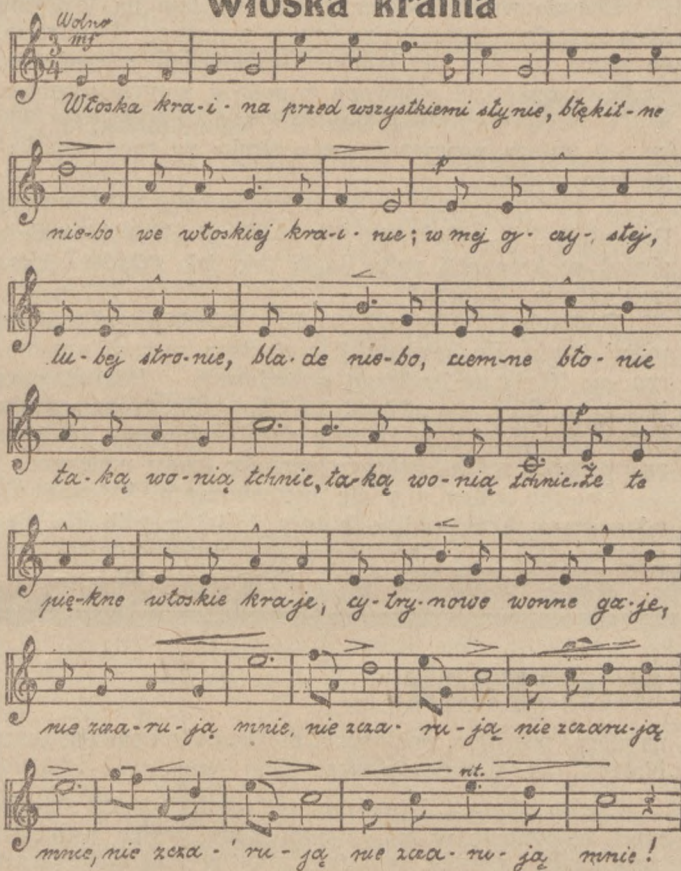 Włoska kraina
Wolno
mf
3
4
Włoska kra-i-na przed wszystkiemi słynie, błękit-ne
nie-bo we włoskiej kra-i-nie; w mej oj-czy-stej,
p
lu-bej stro-nie, bla-de nie-bo, ciem-ne bło-nie
ta-ką wo-nią tchnie, ta-ką wo-nią tchnie. Że te
p
pię-kne włoskie kra-je, cy-try-nowe wonne ga-je,
nie zcza-ru-ją mnie, nie zcza-ru-ją nie zczaru-ją
rit.
mnie, nie zcza-ru-ją nie zcza-ru-ją mnie!